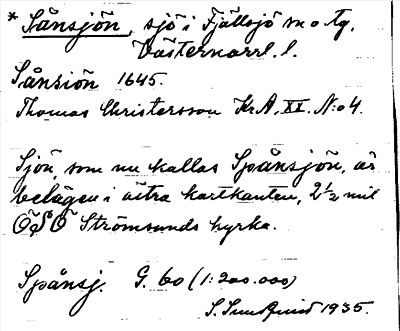 * Sånsjön, sjö i Fjällsjö sn o tg,
Västernorrl. l.
Sånsiön 1645.
Thomas Christersson Kr.A. XI. N:o 4.
Sjön, som nu kallas Spånsjön, är
belägen i östra kartkanten, 2½ mil
ÖSÖ Strömsunds kyrka.
Spånsj. G. 60 (1:200.000)
S. Sundquist 1935.